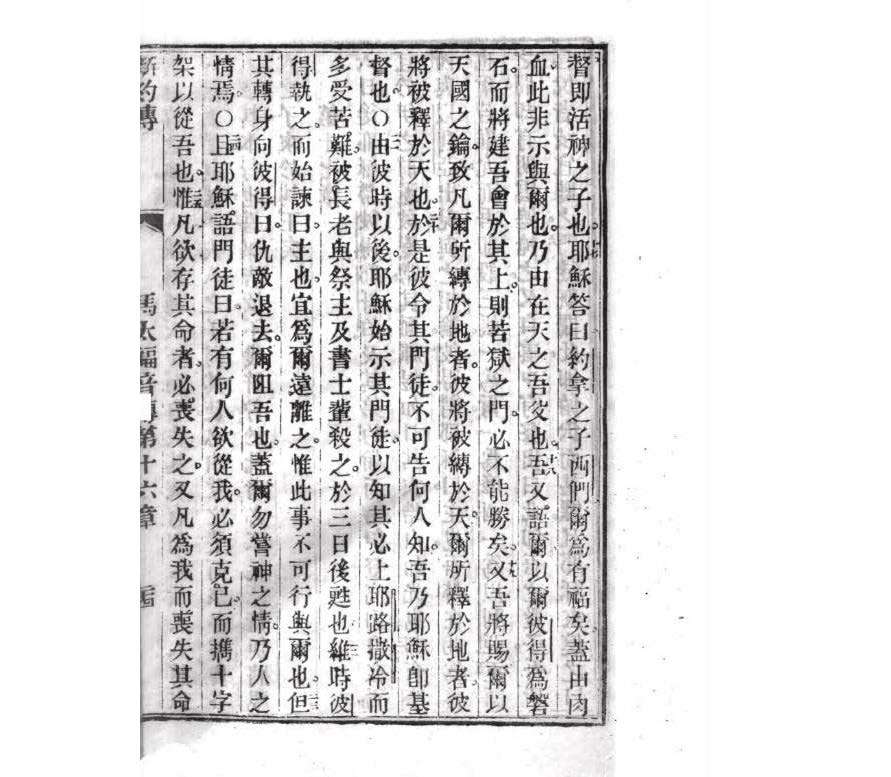 督即活神之子也。耶穌答曰約拿之子西們爾爲有福矣。蓋由肉
血此非示與爾也。乃由在天之吾父也。吾又語爾以爾彼得爲磐
石。而將建吾會於其上。則苦獄之門。必不能勝矣。又吾將賜爾以
天國之鑰。致凡爾所縛於地者。彼將被縛於天。爾所釋於地者。彼
將被釋於天也。於是彼令其門徒。不可告何人知。吾乃耶穌卽基
督也。○由彼時以後。耶穌始示其門徒。以知其必上耶路撒冷而
多受苦難。被長老與祭主及書士輩殺之。於三日後甦也。維時彼
得執之。而始諫曰。主也。宜爲爾遠離之。惟此事不可行與爾也。但
其轉身向彼得曰。仇敵退去。爾阻吾也。蓋爾勿嘗神之情。乃人之
情焉。○且耶穌語門徒曰。若有何人欲從我。必須克己。而攜十字
架以從吾也。惟凡欲存其命者。必喪失之。又凡爲我而喪失其命
新約傳 馬太福音傳第十六章